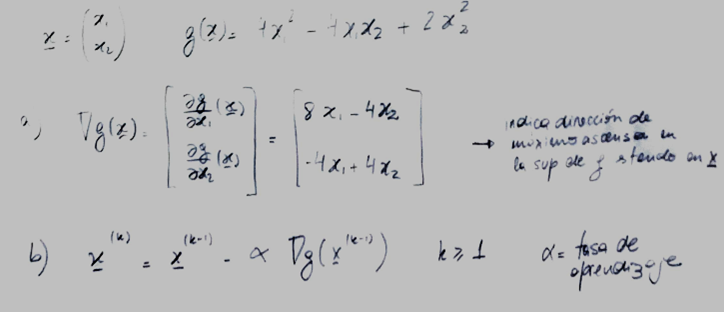 x = (x₁ x₂) g(x) = 4x₁² - 4x₁x₂ + 2x₂²
a) ∇g(x) = [∂g/∂x₁ (x) ∂g/∂x₂ (x)] = [8x₁ - 4x₂ -4x₁ + 4x₂] → indica dirección de
máximo ascenso en
la sup de g stando en x
b) x⁽ᵏ⁾ = x⁽ᵏ⁻¹⁾ - α ∇g(x⁽ᵏ⁻¹⁾) k ≥ 1 α = tasa de
aprendizaje